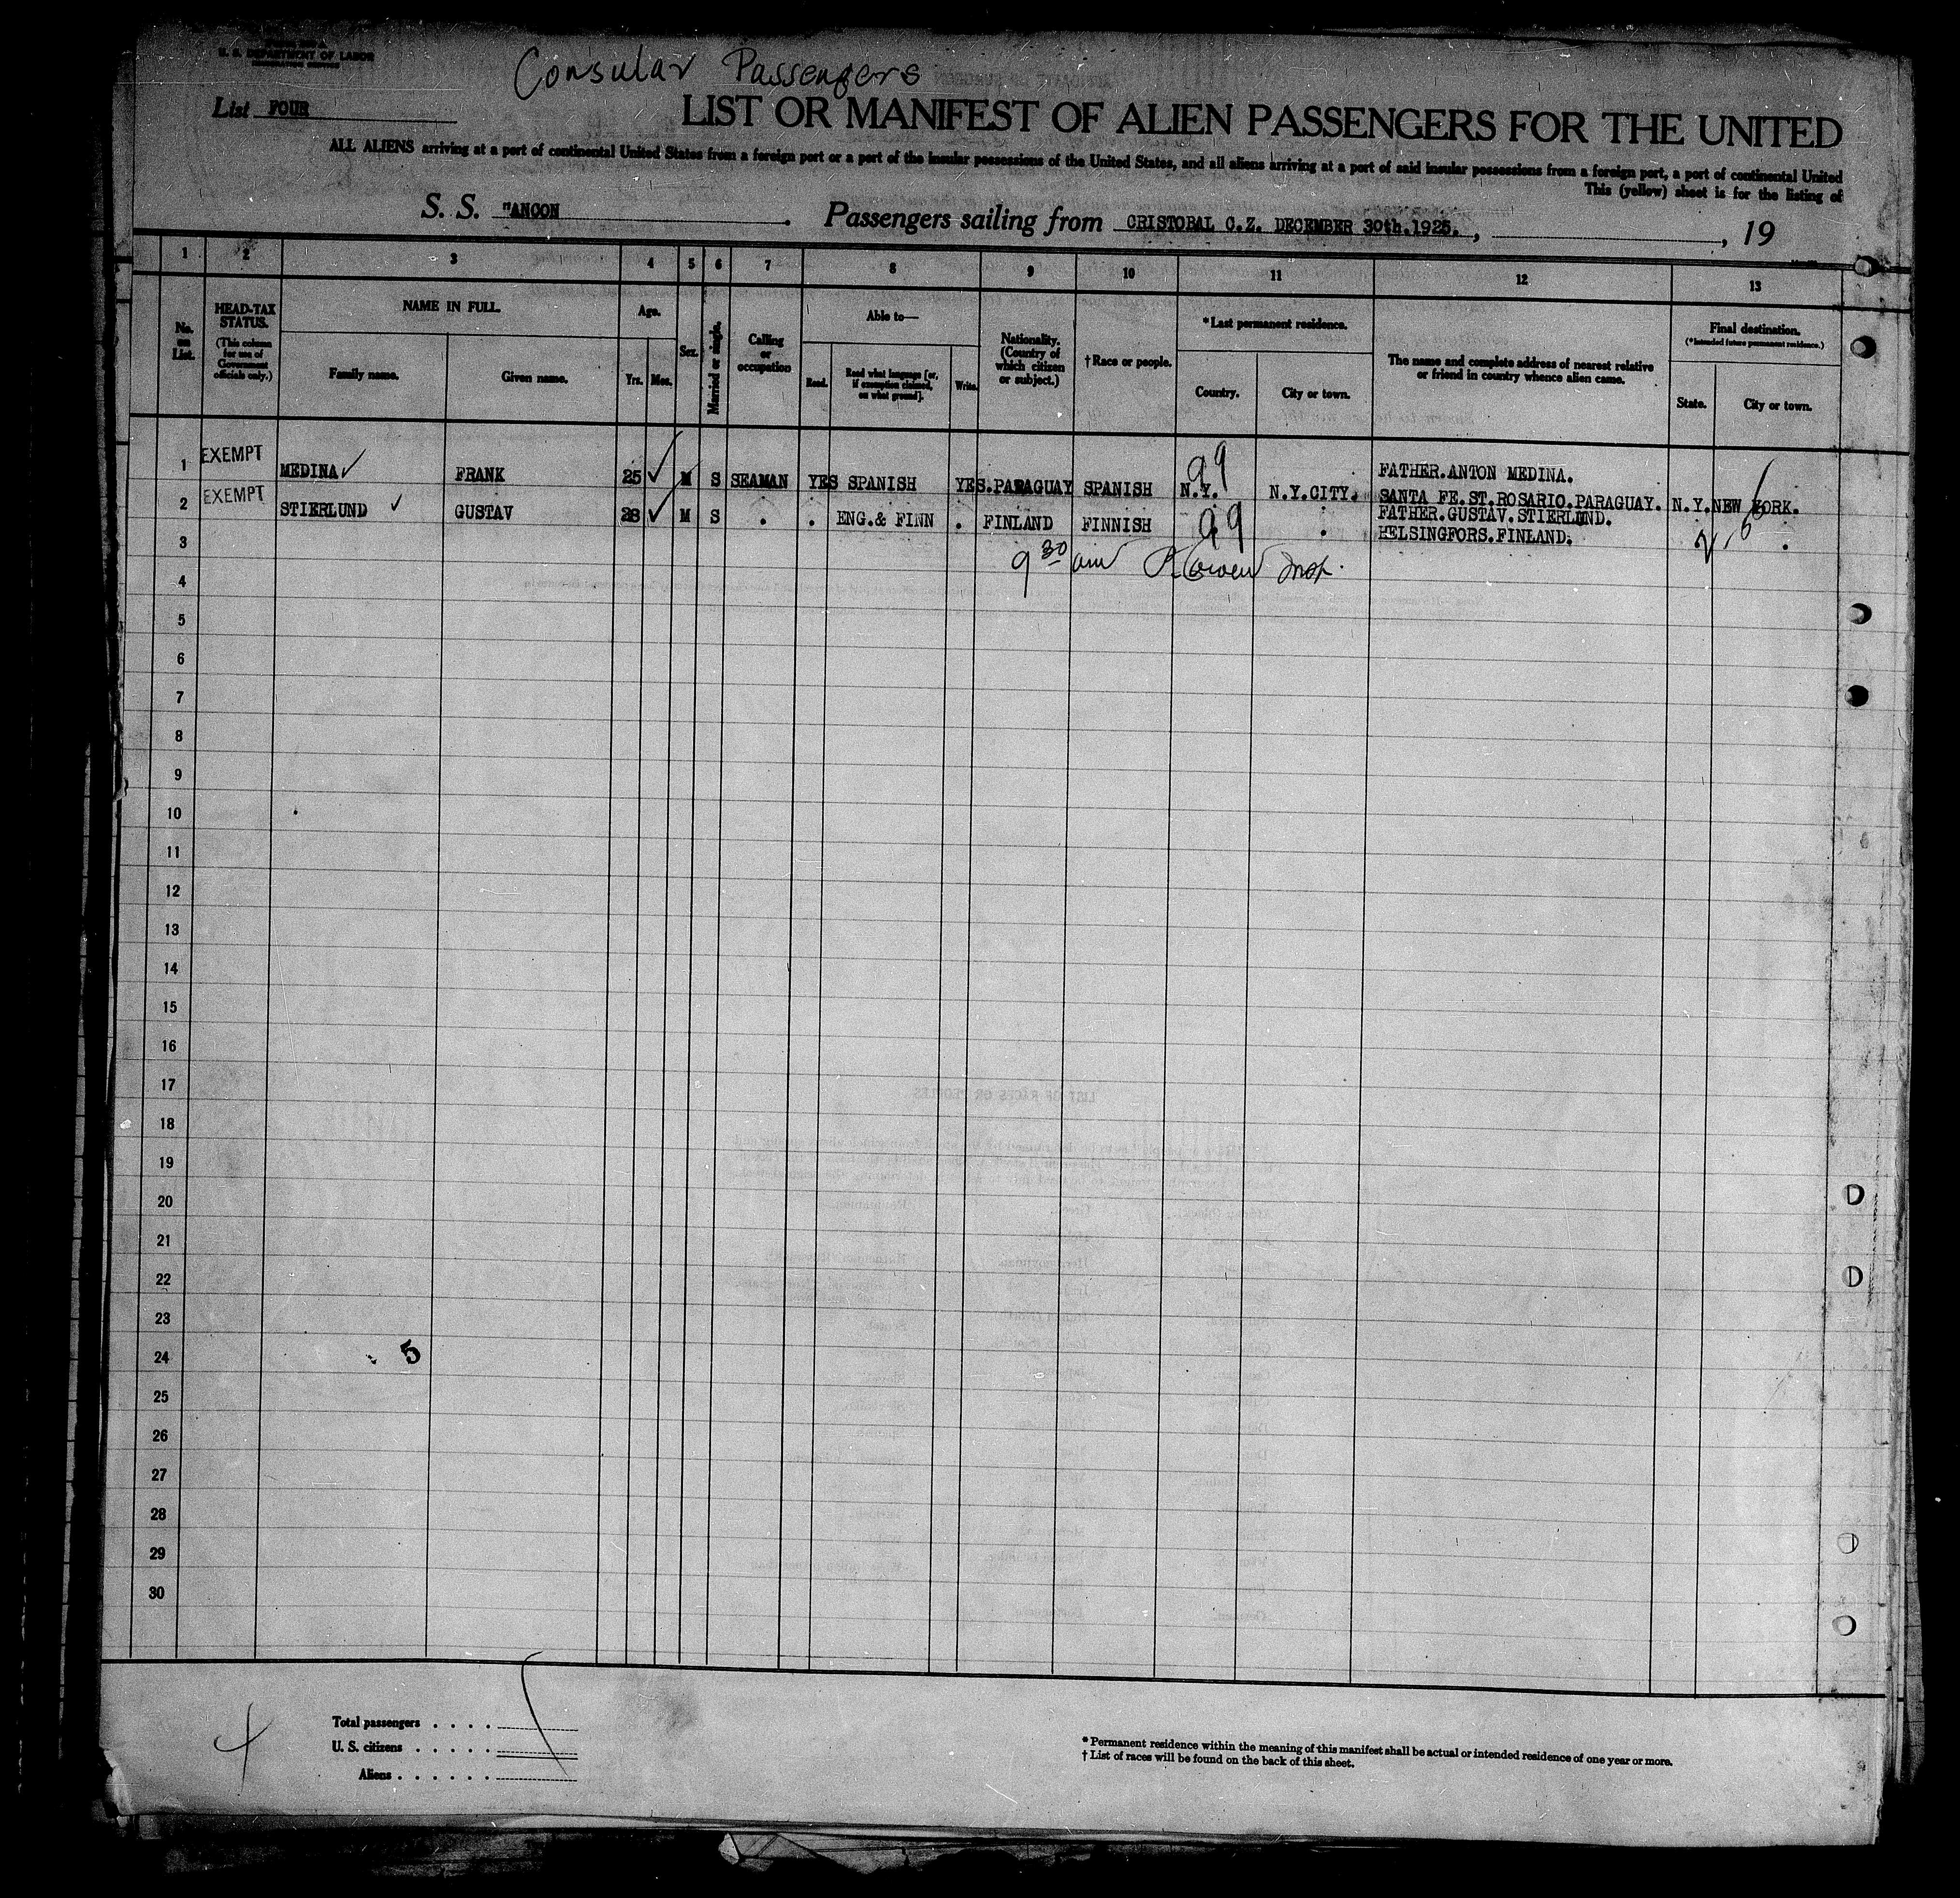 U. S. DEPARTMENT OF LABOR
Consular Passengers
List FOUR
LIST OR MANIFEST OF ALIEN PASSENGERS FOR THE UNITED
ALL ALIENS arriving at a port of continental United States from a foreign port or a port of the insular possessions of the United States, and all aliens arriving at a port of said insular possessions from a foreign port, a port of continental United
This (yellow) sheet is for the listing of
S. S. "ANCON . Passengers sailing from CRISTOBAL C.Z. DECEMBER 30th.1925. , , 19
1 2 3 4 5 6 7 8 9 10 11 12 13
No. on List.
HEAD-TAX STATUS.
(This column for use of Government officials only.)
NAME IN FULL.
Family name. Given name.
Age.
Yrs. Mos.
Sex.
Married or single.
Calling or occupation
Able to—
Read. Read what language [or, if exemption claimed, on what ground]. Write.
Nationality. (Country of which citizen or subject.)
†Race or people.
*Last permanent residence.
Country. City or town.
The name and complete address of nearest relative or friend in country whence alien came.
Final destination.
(*Intended future permanent residence.)
State. City or town.
1 EXEMPT MEDINA ✓ FRANK 25 ✓ M S SEAMAN YES SPANISH YES.PARAGUAY SPANISH N.Y. 99 N.Y.CITY. FATHER.ANTON MEDINA.
SANTA FE.ST.ROSARIO.PARAGUAY. N.Y.NEW YORK.
2 EXEMPT STIERLUND ✓ GUSTAV 28 ✓ M S . . ENG.& FINN . FINLAND FINNISH 99 . FATHER.GUSTAV.STIERLUND.
HELSINGFORS.FINLAND. .
3
9 30 am
4
5
6
7
8
9
10
11
12
13
14
15
16
17
18
19
20
21
22
23
24
5
25
26
27
28
29
30
Total passengers . . . .
U. S. citizens . . . . .
Aliens . . . . . .
* Permanent residence within the meaning of this manifest shall be actual or intended residence of one year or more.
† List of races will be found on the back of this sheet.